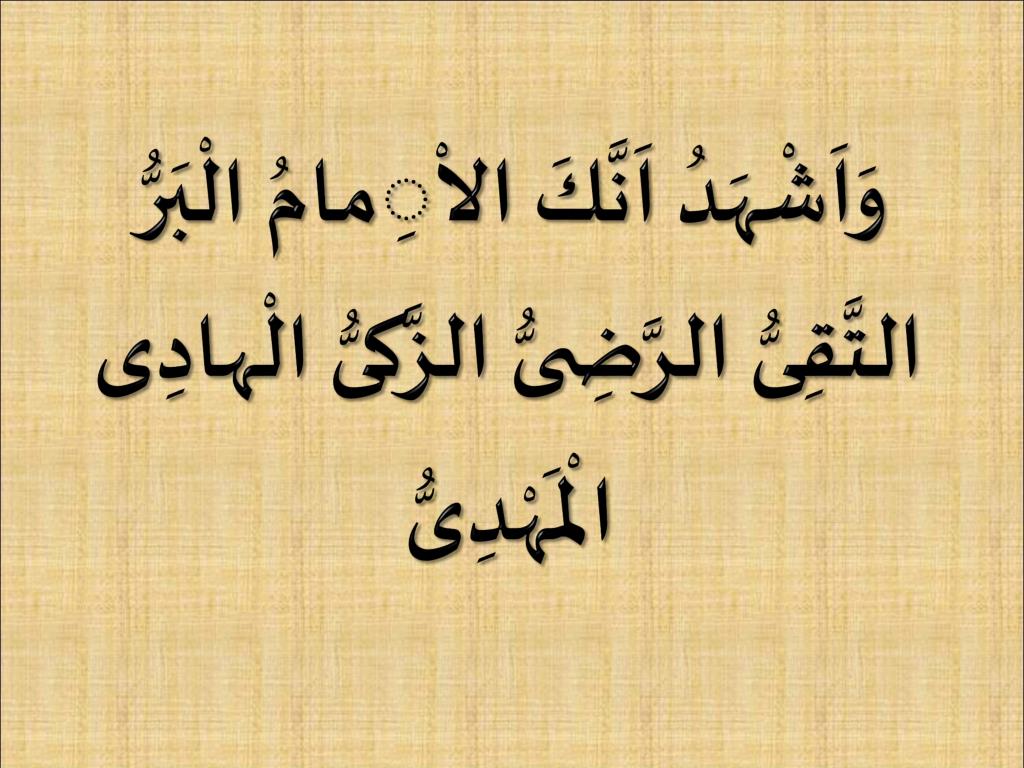 وَاَشْهَدُ اَنَّكَ الاْ ِمامُ الْبَرُّ
التَّقِىُّ الرَّضِىُّ الزَّكىُّ الْهادِى
الْمَهْدِىُّ